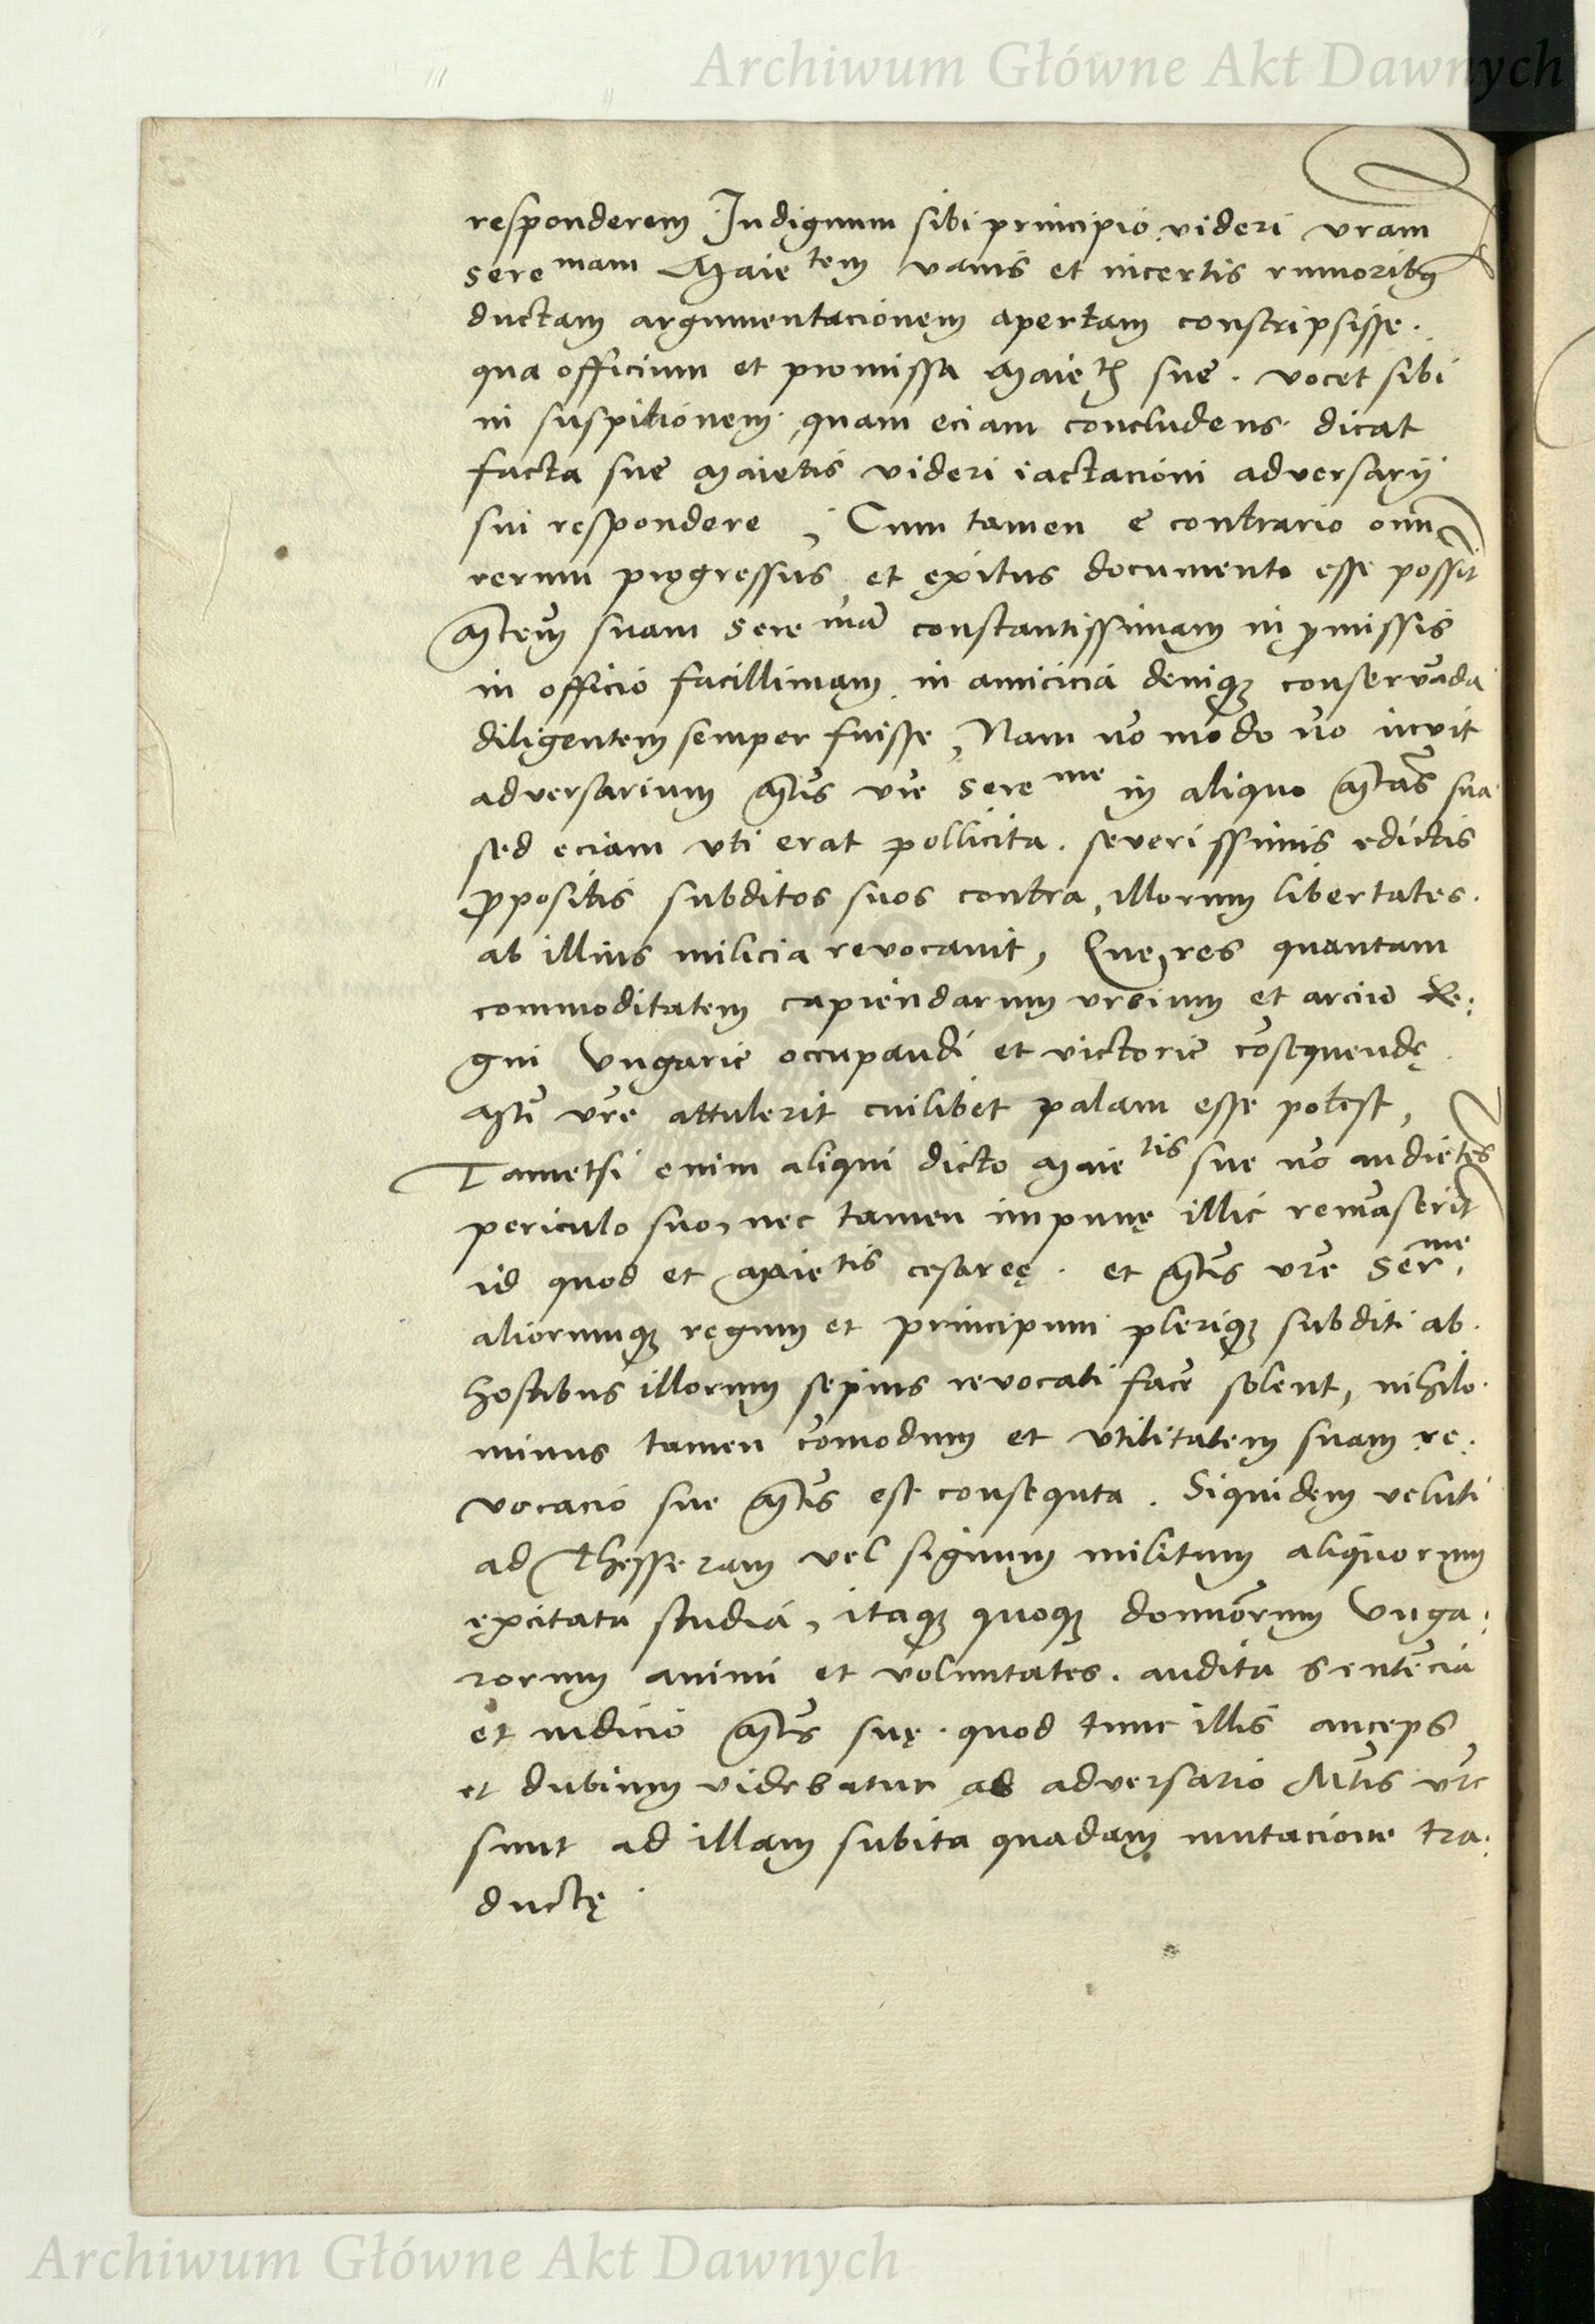 Archiwum Główne Akt Dawnych
responderem Indignum sibi principio videri vram
sere mam Maie tem vanis et incertis rumoribq
ductam argumentacionem apertam conscripsisse.
qua officium et promissa Maie tis sue. vocet sibi
in suspitionem. quam eciam concludens dicat
facta sue Maietis videri iactacioni adversarij
sui respondere, Cum tamen e contrario omn
rerum progressus et exitus documento esse possit
Mtem suam sere mā constantissimam in pmissis
in officio facillimam in amicicia deniqz conservāda
diligentem semper fuisse, Nam nō modo nō iuvit
adversarium Mtis vre sere me in aliquo Mtas sua
sed eciam vti erat pollicita. severissimis edictis
ppositis subditos suos contra illorum libertates.
ab illius milicia revocavit, Que res quantam
commoditatem capiendarum vrbium et arciū Re:
gni Vngarie occupandi et victorie cōsequendę
Mti vrē attulerit cuilibet palam esse potest,
Tametsi enim aliqui dicto Maie tis sue nō audiētes
periculo suo, nec tamen impunę illic remāserīt
id quod et Maie tis cesareę. et Mtis vrē Ser me
aliorumqz regum et principum pleriqz subditi ab
hostibus illorum sepius revocati facē solent, nihilo
minus tamen cōmodum et vtilitatem suam re:
vocacio sue Mtis est consequta. Siquidem veluti
ad thesseram vel signum militum aliquorum
excitata studia, itaqz quoqz domīorum Vnga:
rorum animi et voluntates. audita sentēcia
et iudicio Mtis suę. quod tunc illis anceps
et dubium videbatur ab adversario Mtis vrē
sunt ad illam subita quadam mutacione tra:
ductę.
Archiwum Główne Akt Dawnych